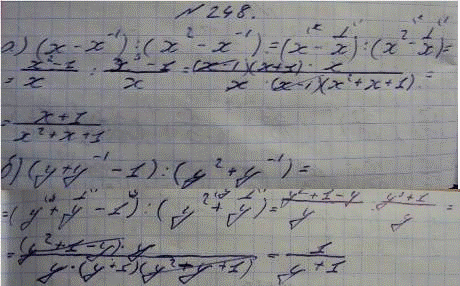 № 248.
а) (x - x⁻¹) : (x² - x⁻¹) = (x - 1/x) : (x² - 1/x) =
= (x² - 1)/x : (x³ - 1)/x = (x-1)(x+1) · x / x · (x-1)(x² + x + 1) =
= (x + 1)/(x² + x + 1)
б) (y + y⁻¹ - 1) : (y² + y⁻¹) =
= (y + 1/y - 1) : (y² + 1/y) = (y² + 1 - y)/y : (y³ + 1)/y =
= (y² + 1 - y) · y / y · (y + 1)(y² - y + 1) = 1/(y + 1)